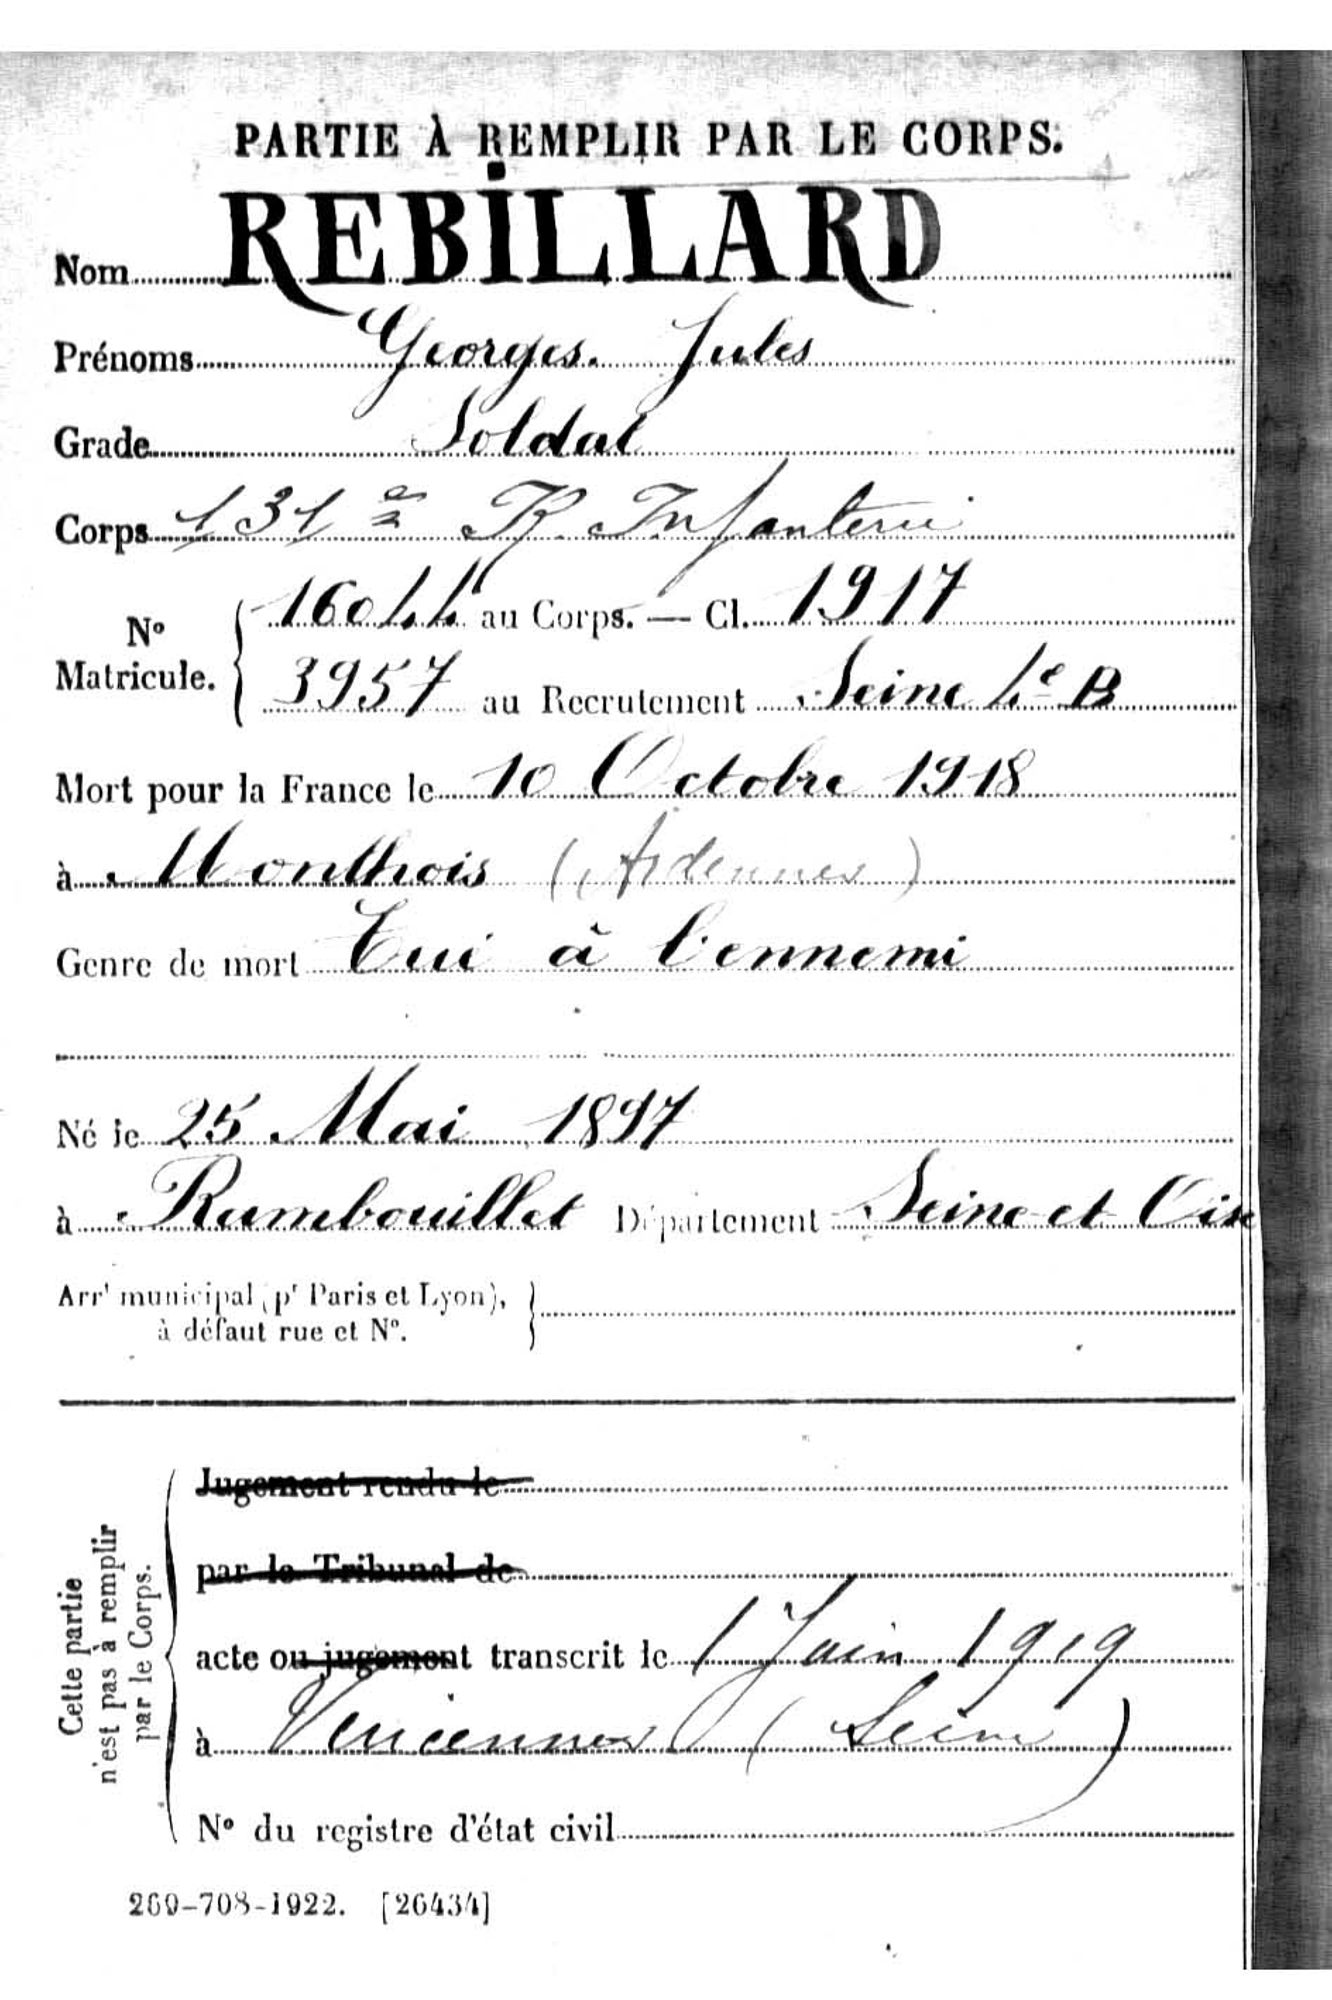 PARTIE À REMPLIR PAR LE CORPS.
Nom REBILLARD
Prénoms Georges. Jules
Grade Soldat
Corps 131e R. Infanterie
No Matricule. { 16044 au Corps. — Cl. 1917
3957 au Recrutement Seine 4e B
Mort pour la France le 10 Octobre 1918
à Monthois (Ardennes)
Genre de mort Tué à l'ennemi
Né le 25 Mai 1897
à Rambouillet Département Seine et Oise
Arrt municipal (pr Paris et Lyon),
à défaut rue et No.
Cette partie
n'est pas à remplir
par le Corps.
Jugement rendu le
par le Tribunal de
acte ou jugement transcrit le 1 Juin 1919
à Vincennes (Seine)
No du registre d'état civil
269-708-1922. [26434]